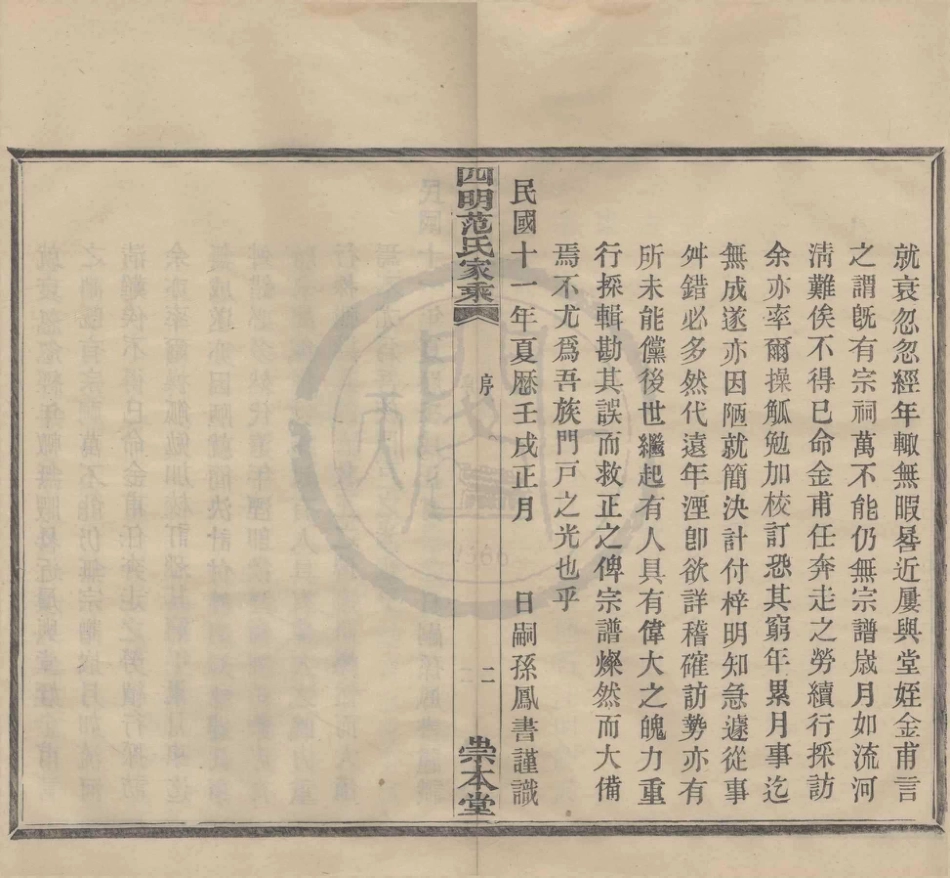 就衰忽忽經年輙無暇晷近屢與堂姪金甫言
之謂旣有宗祠萬不能仍無宗譜歲月如流河
淸難俟不得已命金甫任奔走之勞續行採訪
余亦率爾操觚勉加校訂恐其窮年累月事迄
無成遂亦因陋就簡決計付梓明知急遽從事
舛錯必多然代遠年湮卽欲詳稽確訪勢亦有
所未能儻後世繼起有人具有偉大之魄力重
行採輯勘其誤而救正之俾宗譜燦然而大備
焉不尤爲吾族門戶之光也乎
民國十一年夏曆壬戌正月　日嗣孫鳳書謹識
四明范氏家乘
序
二
崇本堂